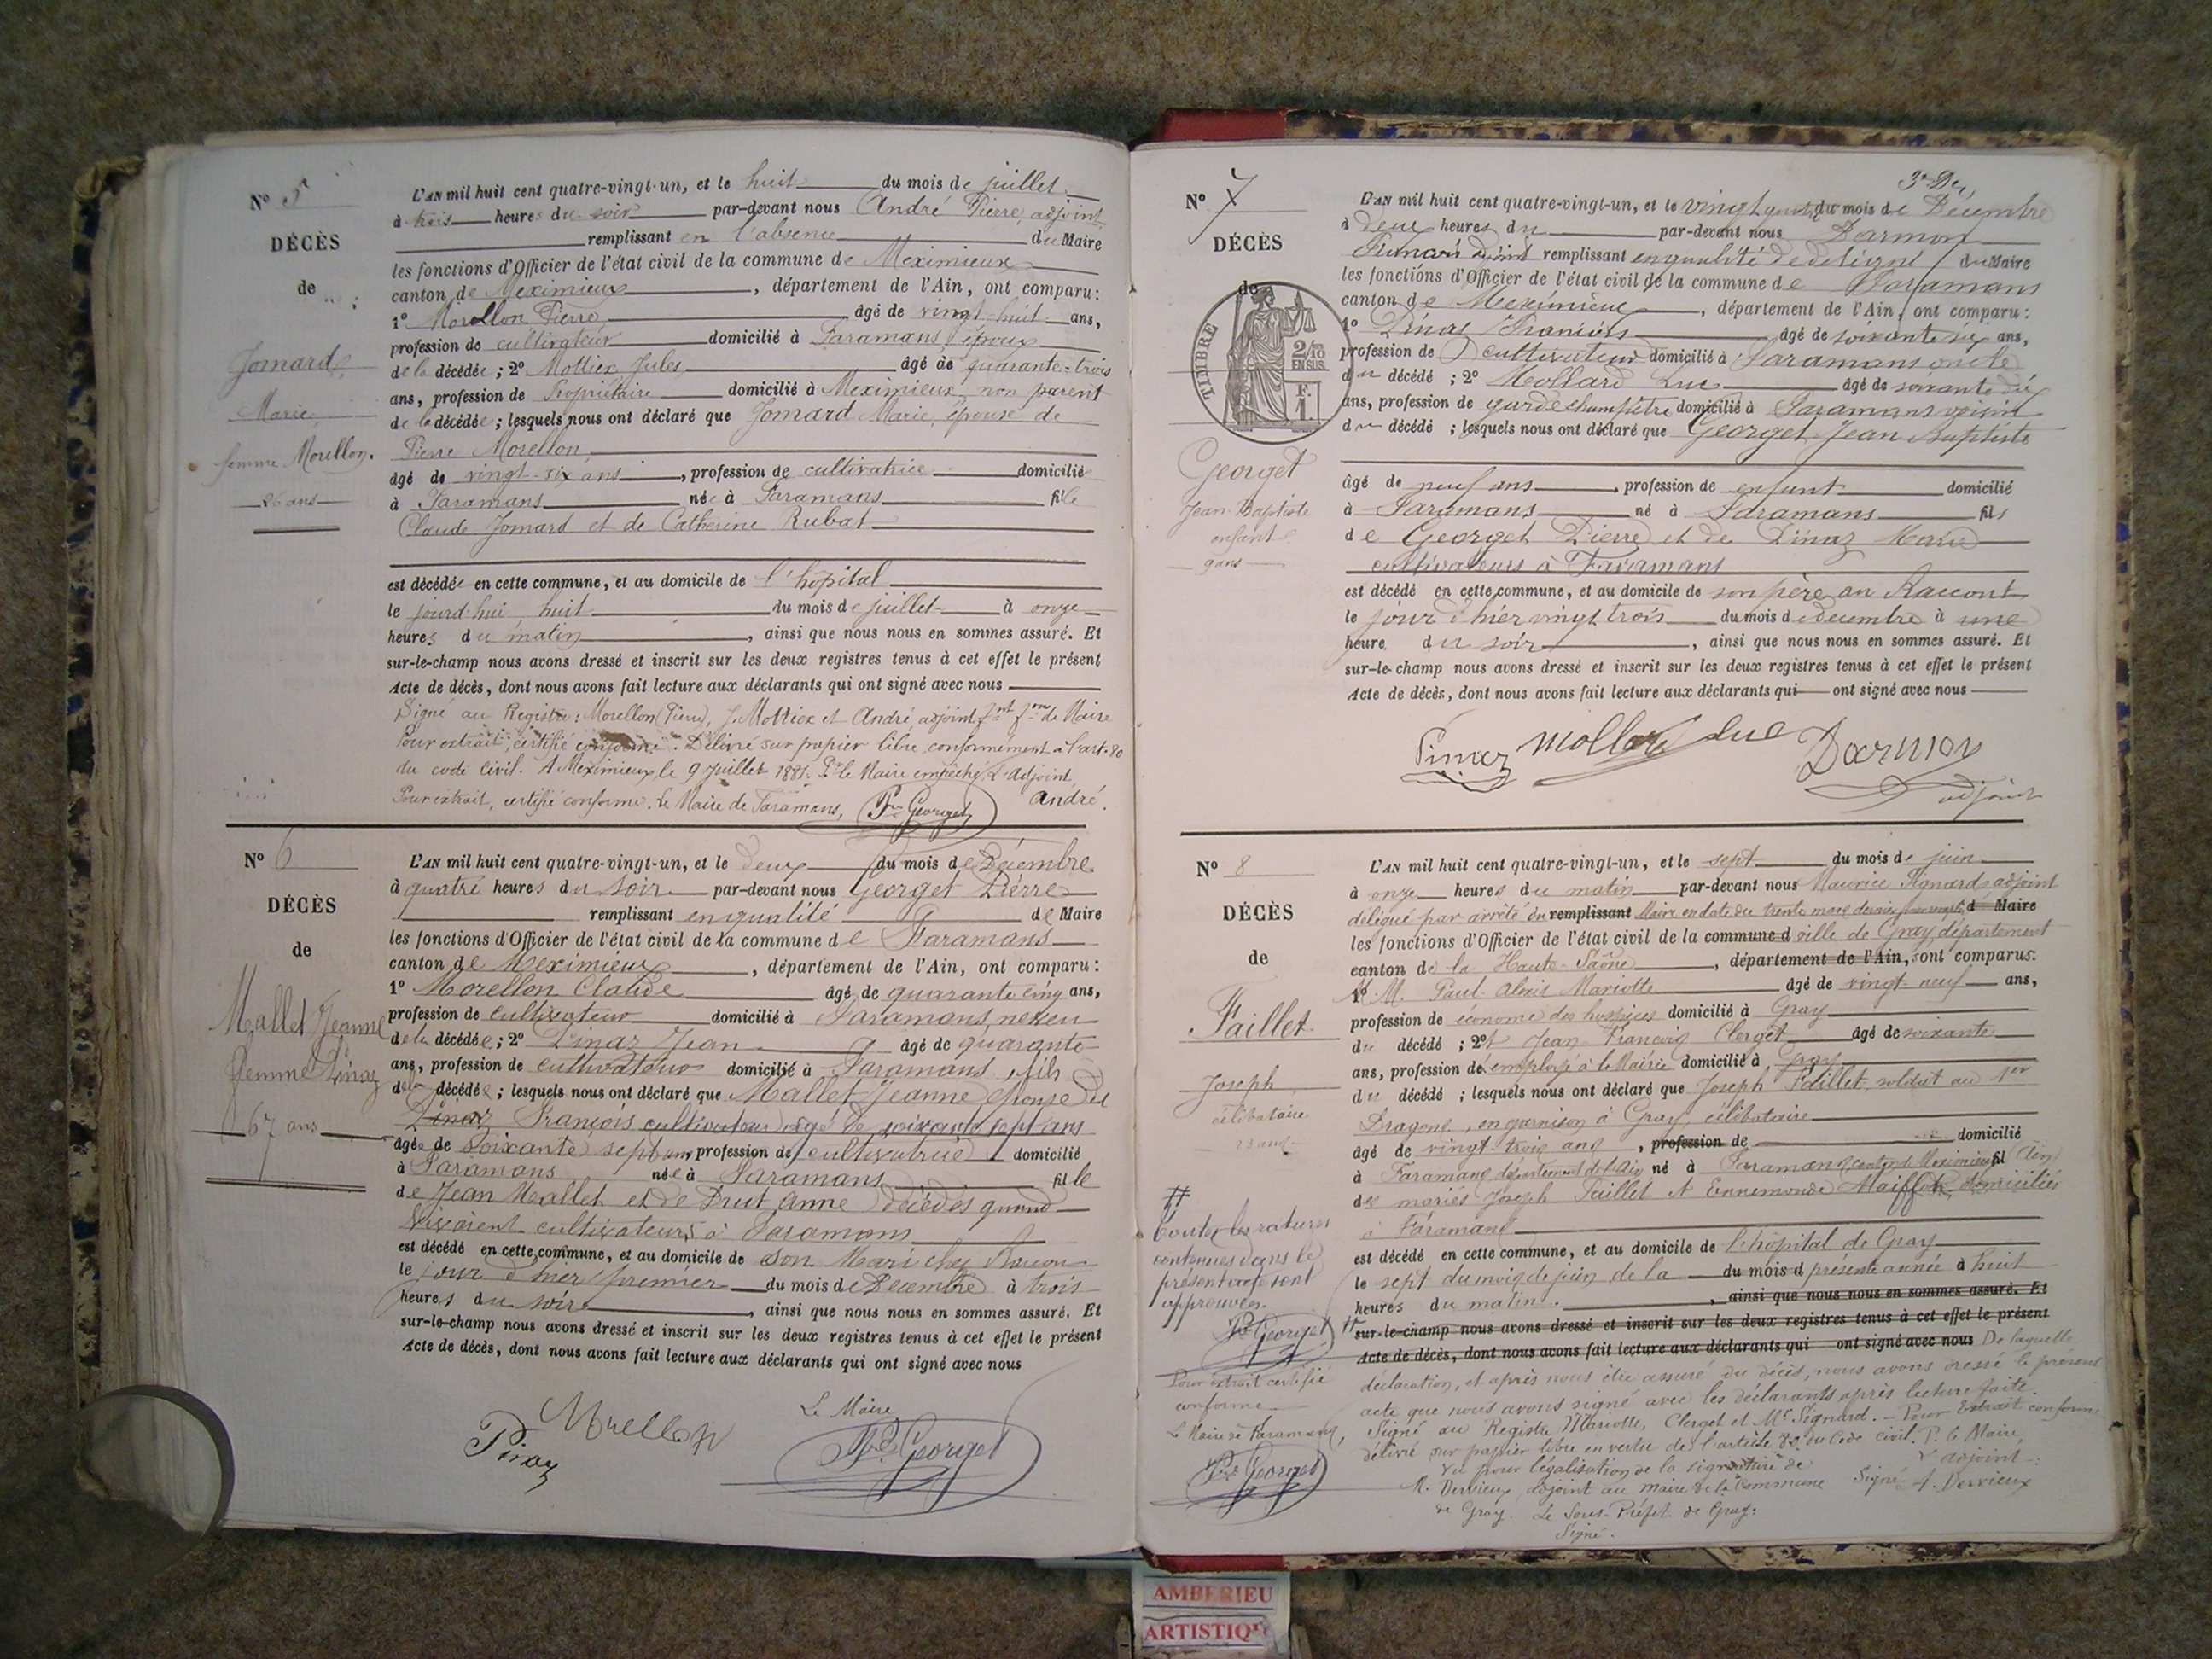 N° 5
DÉCÈS
de
Jomard
Marie,
femme Morellon.
26 ans
L'AN mil huit cent quatre-vingt-un, et le huit du mois de juillet
à trois heures du soir par-devant nous André Pierre, adjoint
remplissant en l'absence du Maire
les fonctions d'Officier de l'état civil de la commune de Meximieux
canton de Meximieux, département de l'Ain, ont comparu:
1° Morellon Pierre âgé de vingt-huit ans,
profession de cultivateur domicilié à Faramans époux
de la décédée; 2° Mottiex Jules âgé de quarante-trois
ans, profession de Propriétaire domicilié à Meximieux non parent
de la décédée; lesquels nous ont déclaré que Jomard Marie, épouse de
Pierre Morellon
âgé de vingt-six ans, profession de cultivatrice domicilié
à Faramans née à Faramans fille
Claude Jomard et de Catherine Rubat
est décédée en cette commune, et au domicile de l'hôpital
le jourd'hui huit du mois de juillet à onze
heures du matin, ainsi que nous nous en sommes assuré. Et
sur-le-champ nous avons dressé et inscrit sur les deux registres tenus à cet effet le présent
Acte de décès, dont nous avons fait lecture aux déclarants qui ont signé avec nous
Signé au Registre: Morellon (Pierre), J. Mottiex et André, adjoint de Maire
Pour extrait, certifié conforme. Délivré sur papier libre, conformément à l'art. 80
du code civil. A Meximieux, le 9 Juillet 1881. Pr le Maire empêché, L'adjoint,
Pour extrait, certifié conforme. Le Maire de Faramans, Pre Georget André.
N° 6
DÉCÈS
de
Mallet Jeanne
femme Pinaz
67 ans
L'AN mil huit cent quatre-vingt-un, et le deux du mois de Décembre
à quatre heures du soir par-devant nous Georget Pierre
remplissant en qualité de Maire
les fonctions d'Officier de l'état civil de la commune de Faramans
canton de Meximieux, département de l'Ain, ont comparu:
1° Morellon Claude âgé de quarante cinq ans,
profession de cultivateur domicilié à Faramans, neveu
de la décédée; 2° Pinaz Jean âgé de quarante
ans, profession de cultivateur domicilié à Faramans, fils
de la décédée; lesquels nous ont déclaré que Mallet Jeanne épouse de
Pinaz François cultivateur agé de soixante sept ans
âgée de soixante sept ans, profession de cultivatrice domicilié
à Faramans née à Faramans fille
de Jean Mallet et de Drut Anne décédés quand
vivaient cultivateurs à Faramans
est décédé en cette commune, et au domicile de son Mari chez
le jour d'hier premier du mois de Décembre à trois
heures du soir, ainsi que nous nous en sommes assuré. Et
sur-le-champ nous avons dressé et inscrit sur les deux registres tenus à cet effet le présent
Acte de décès, dont nous avons fait lecture aux déclarants qui ont signé avec nous
Morellon
Pinaz
Le Maire
Pre Georget
3e Der
N° 7
DÉCÈS
de
TIMBRE
2/10 EN SUS.
1 F.
Georget
Jean-Baptiste
enfant
9 ans
L'AN mil huit cent quatre-vingt-un, et le vingt quatre du mois de Décembre
à deux heures du par-devant nous Darmon
François adjoint remplissant en qualité de délégué du Maire
les fonctions d'Officier de l'état civil de la commune de Faramans
canton de Meximieux, département de l'Ain, ont comparu:
1° Pinaz François âgé de soixante six ans,
profession de cultivateur domicilié à Faramans oncle
du décédé; 2° Mollard Luc âgé de soixante dix
ans, profession de garde champêtre domicilié à Faramans voisin
du décédé; lesquels nous ont déclaré que Georget Jean Baptiste
âgé de neuf ans, profession de enfant domicilié
à Faramans né à Faramans fils
de Georget Pierre et de Pinaz Marie
cultivateurs à Faramans
est décédé en cette commune, et au domicile de son père au
le jour d'hier vingt trois du mois de decembre à une
heure du soir, ainsi que nous nous en sommes assuré. Et
sur-le-champ nous avons dressé et inscrit sur les deux registres tenus à cet effet le présent
Acte de décès, dont nous avons fait lecture aux déclarants qui ont signé avec nous
Pinaz Mollard Luc Darmon
adjoint
N° 8
DÉCÈS
de
Faillet
Joseph
célibataire
23 ans
L'AN mil huit cent quatre-vingt-un, et le sept du mois de juin
à onze heures du matin par-devant nous Maurice Signard adjoint
délégué par arrêté du remplissant Maire en date du trente mars dernier d Maire
les fonctions d'Officier de l'état civil de la commune d ville de Gray, département
canton de la Haute-Saône, département de l'Ain, sont comparus:
1° M. Paul Alexis Mariotte âgé de vingt-neuf ans,
profession de économe des hospices domicilié à Gray
du décédé; 2° Jean François Clerget âgé de soixante
ans, profession de employé à la Mairie domicilié à Gray
du décédé; lesquels nous ont déclaré que Joseph Faillet soldat au 1er
Dragons, en garnison à Gray, célibataire
âgé de vingt-trois ans, profession de domicilié
à Faramans département de l'Ain né à Faramans canton de Meximieux fil (Ain)
des mariés Joseph Faillet et Ennemonde domiciliés
à Faramans
est décédé en cette commune, et au domicile de l'hôpital de Gray
le sept du mois de juin de la du mois d présente année à huit
heures du matin. , ainsi que nous nous en sommes assuré. Et
sur-le-champ nous avons dressé et inscrit sur les deux registres tenus à cet effet le présent
Acte de décès, dont nous avons fait lecture aux déclarants qui ont signé avec nous De laquelle
déclaration, et après nous être assuré du décès, nous avons dressé le présent
acte que nous avons signé avec les déclarants après lecture faite.
Signé au Registre Mariotte, Clerget et Mce Signard. - Pour Extrait conforme
délivré sur papier libre en vertu de l'article 80 du Code civil. P. le Maire,
L'adjoint:
Vu pour légalisation de la signature de
M. Dervieux, adjoint au maire de la commune Signé A. Dervieux
de Gray. Le Sous-Préfet de Gray:
Signé.
Toutes les ratures
contenues dans le
présent acte sont
approuvées.
Pre Georget
Pour extrait certifié
conforme
Le Maire de Faramans,
Pre Georget
AMBERIEU
ARTISTIQUE